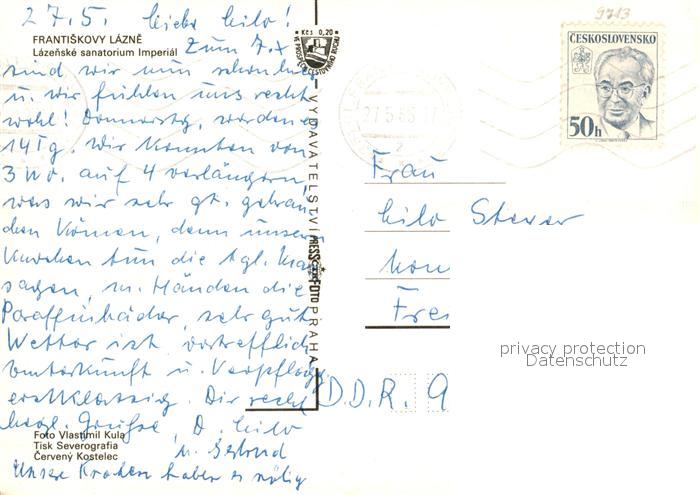 27.5. Liebe Lilo!
FRANTIŠKOVY LÁZNĚ
Lázeňské sanatorium Imperiál
Zum 7. x
sind wir nun schon hier
u. wir fühlen uns recht
wohl! Donnerstg. werden es
14 Tg. Wir konnten von
3 Wo. auf 4 verlängern,
was wir sehr gt. gebrau
chen können, denn unsere
Knochen tun die tgl. Mas
sagen, u. Händen die
Paraffinbäder, sehr gut
Wetter ist vortrefflich
Unterkunft u. Verpflegg
erstklassig. Dir recht
herzl. Grüße, D. Lilo
u. Gertrud
Foto Vlastimil Kula
Tisk Severografia
Červený Kostelec
Unsre Knochen haben es nötig
Kčs 0,20
VYDAVATELSTVÍ PRESSFOTO PRAHA
9713
ČESKOSLOVENSKO
50h
27.5.85
Frau
Lilo
Frei
D.D.R. 9
privacy protection
Datenschutz